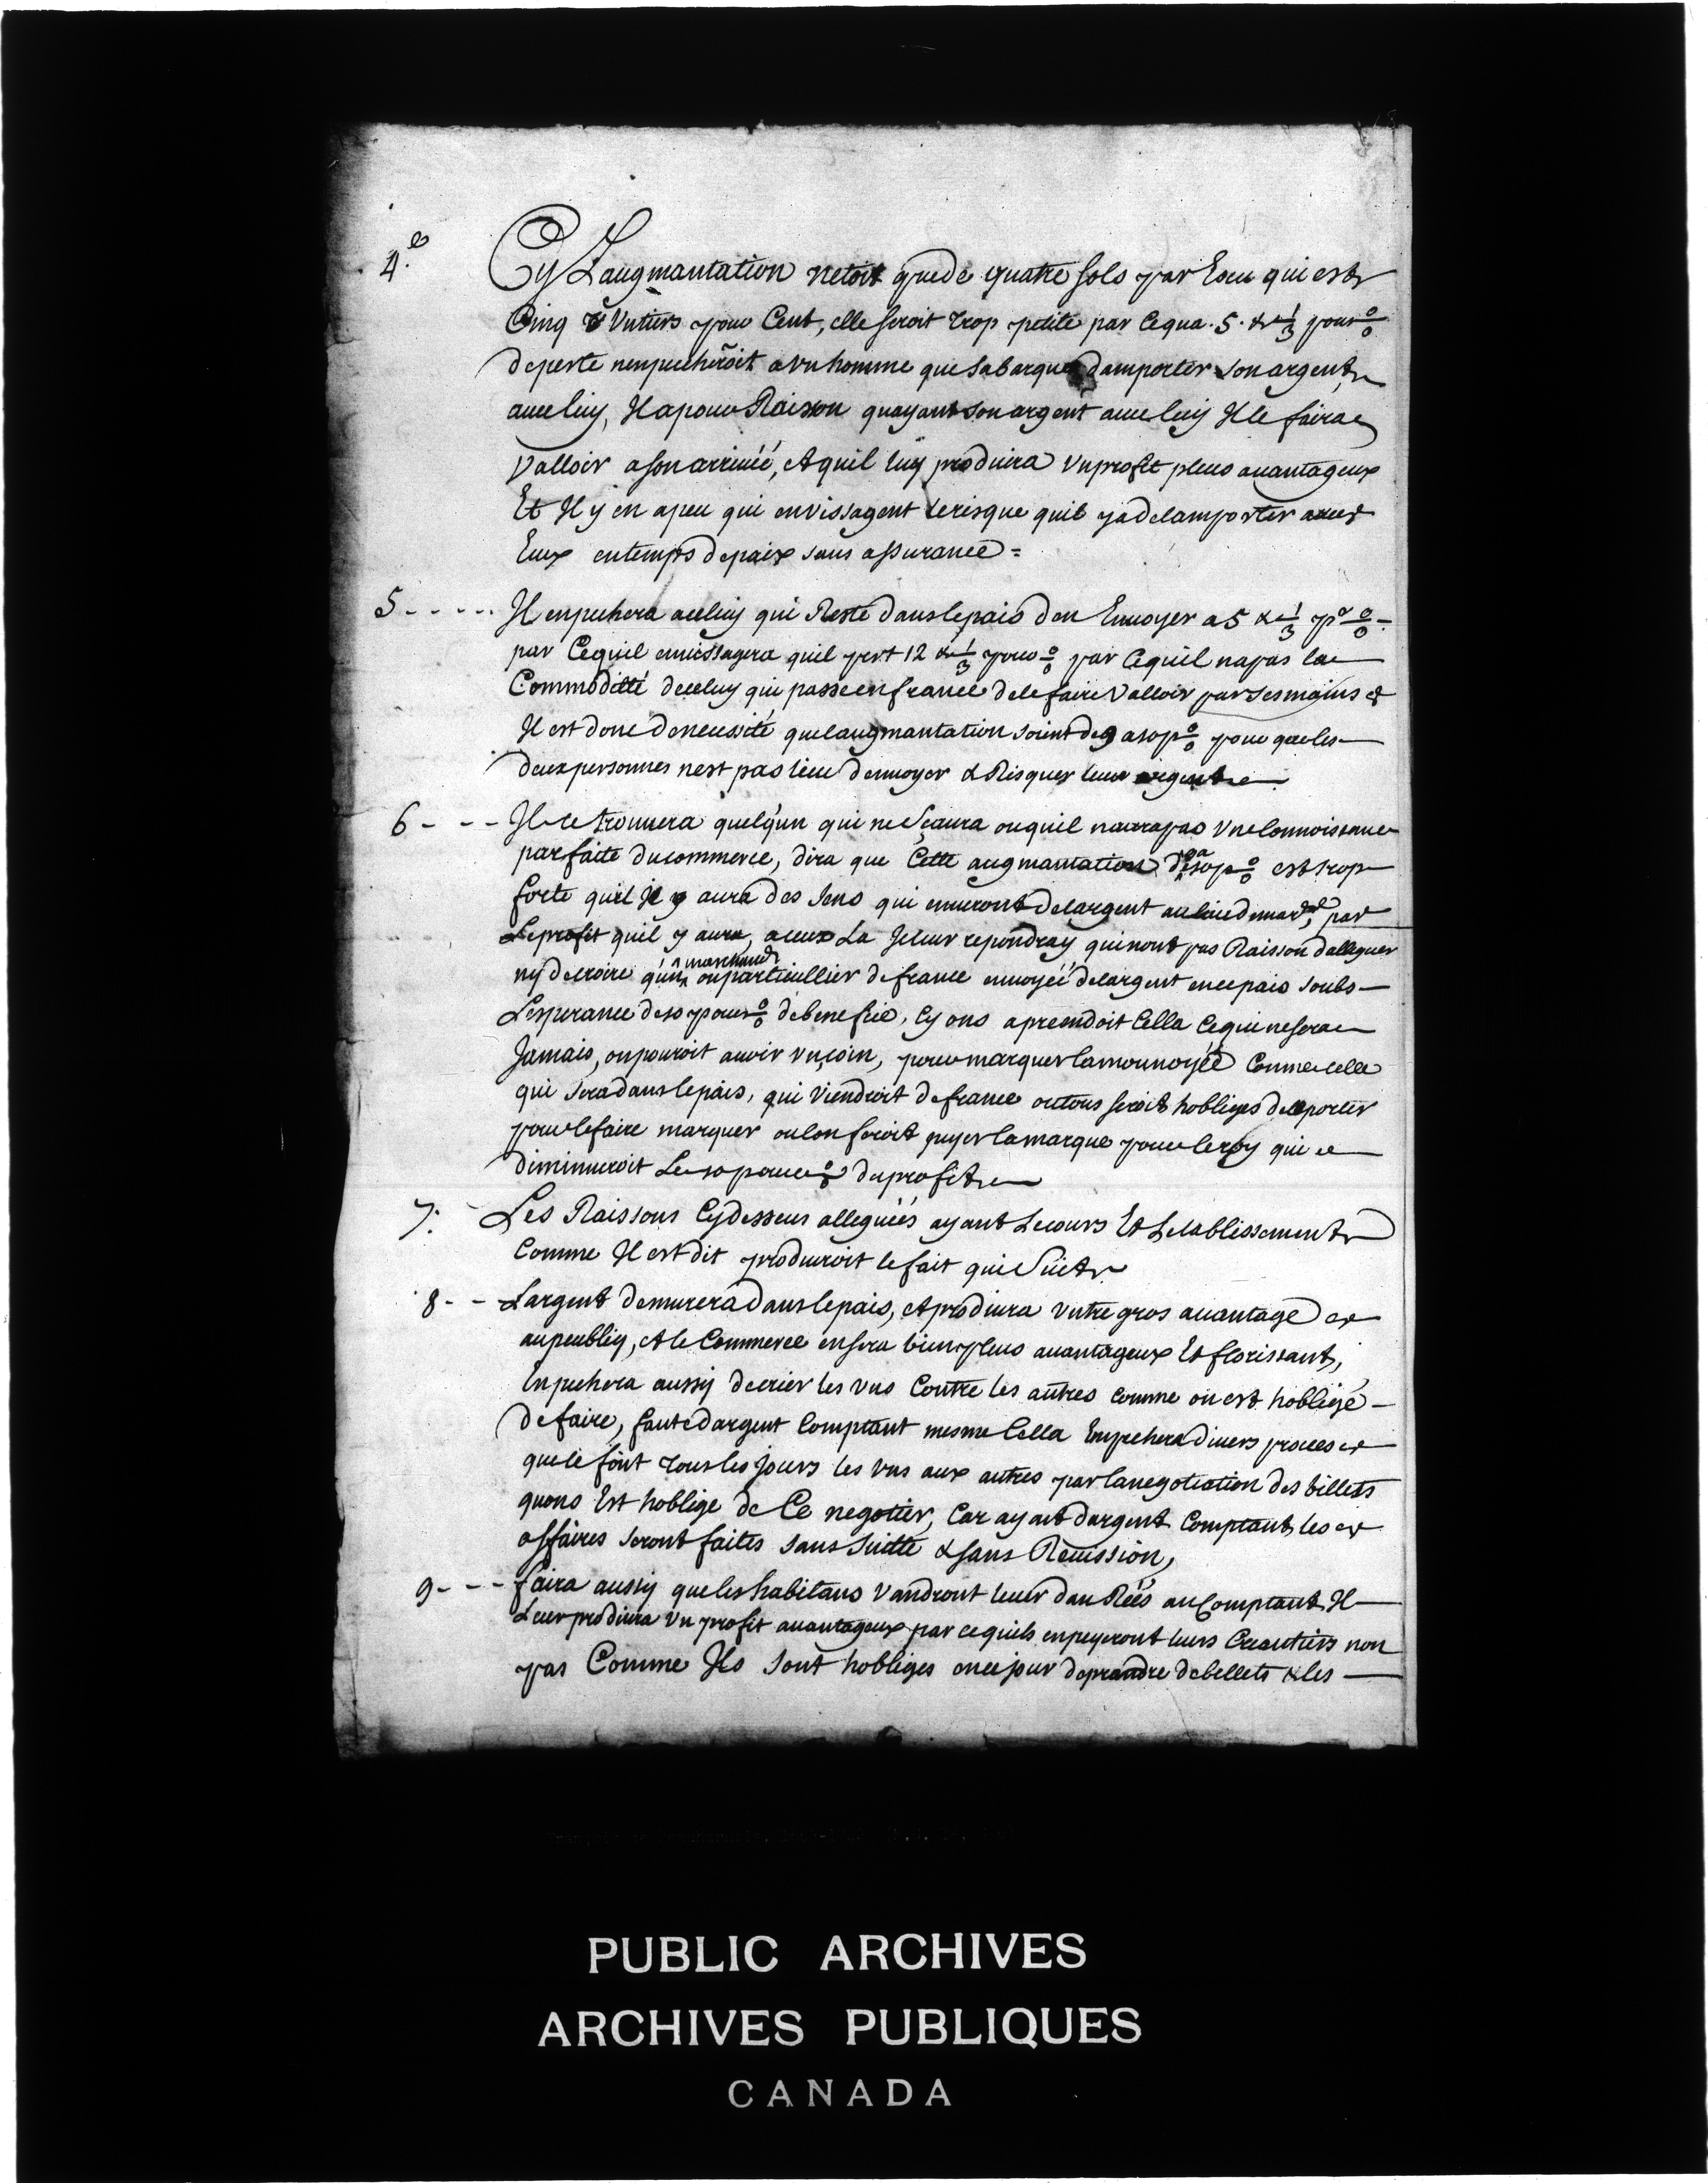 4.e Cy Laugmantation netoit quede quatre sols par Escu qui est
Cinq & Vntiers pour Cent, elle seroit trop petite par cequa. 5. & 1/3 pour 0/0
deperte nenpecheroit a vn homme que sabarque damporter son argent
avec luy, Il a pour Raison quayant son argent avec luy Il le faira
Valloir a son arriuéé, et quil luy produira vn profit plus auantageux
Et Il y en a peu qui envissagent lerisque quil y a delamporter avec
Eux en temps depaix sans assurance =
5 - - - - - Il enpechera aceluy qui Reste dans lepais den Enuoyer a 5 & 1/3 pr 0/0 -
par Cequil enuissagera quil pert 12 & 1/3 pour 0/0 par Cequil napas la
Commodité deceluy qui passe en france dele faire Valloir par ses mains &
Il est donc denecessité quelaugmantation soient de 9 a 10 p 0/0 pour que les
deux personnes nest pas lieu denuoyer & Risquer leur argent
6 - - - Il ce trouuera quelqun qui ne sçaura ou quil naura pas vne Connoissance
parfaite ducommerce, dira que Cette augmantation de 9 a 10 p 0/0 est trop
forte quil Il y aura des gens qui enueront delargent au lieu demar.de, par
Le profit quil y aura, a ceux La Je leur repondray, qui nont pas Raison dalleguer
ny decroire qun marchand ou particullier de france enuoyéé delargent encepais soubs
Lesperance de 10 pour 0/0 debenefice, Cy ons aprendoit Cella Cequi nesera
Jamais, on pouroit auoir vn coin, pour marquer lamonnoyéé Comme celle
qui sera dans lepais, qui Viendroit defrance ou tous seroit hobliges dela porter
pour lefaire marquer ou lon feroit payer lamarque pour leroy qui
diminueroit Le 10 pour 0/0 deprofit
7. Les Raissons Cydesseus alleguéés ayant Lecours Et Letablissement
Comme Il est dit produiroit le fait qui Suit
8 - - Largent demurera dans lepais, et produira vntre gros auantage
aupeubliq, et le Commerce ensera bien plus auantageux Et florissant,
Enpechera aussy decrier les vns Contre les autres comme on est hobligé -
defaire, faute dargent Comptant mesme Cella Empechera diuers proces
quece font tous les jours les vns aux autres par lanegotiation des billets
quons Est hoblige de Ce negotier, Car ayant dargent Comptant les
affaires seront faites sans suitte & sans Remission,
9 - - - faira aussy que les habitans Vandront leur dan Réés au Comptant, Il
Leur produira Vn profit auantageux par ce quils enpayeront leurs Creantiers non
pas Comme Ils sont hobliges encejour deprandre debillets & les
PUBLIC ARCHIVES
ARCHIVES PUBLIQUES
CANADA